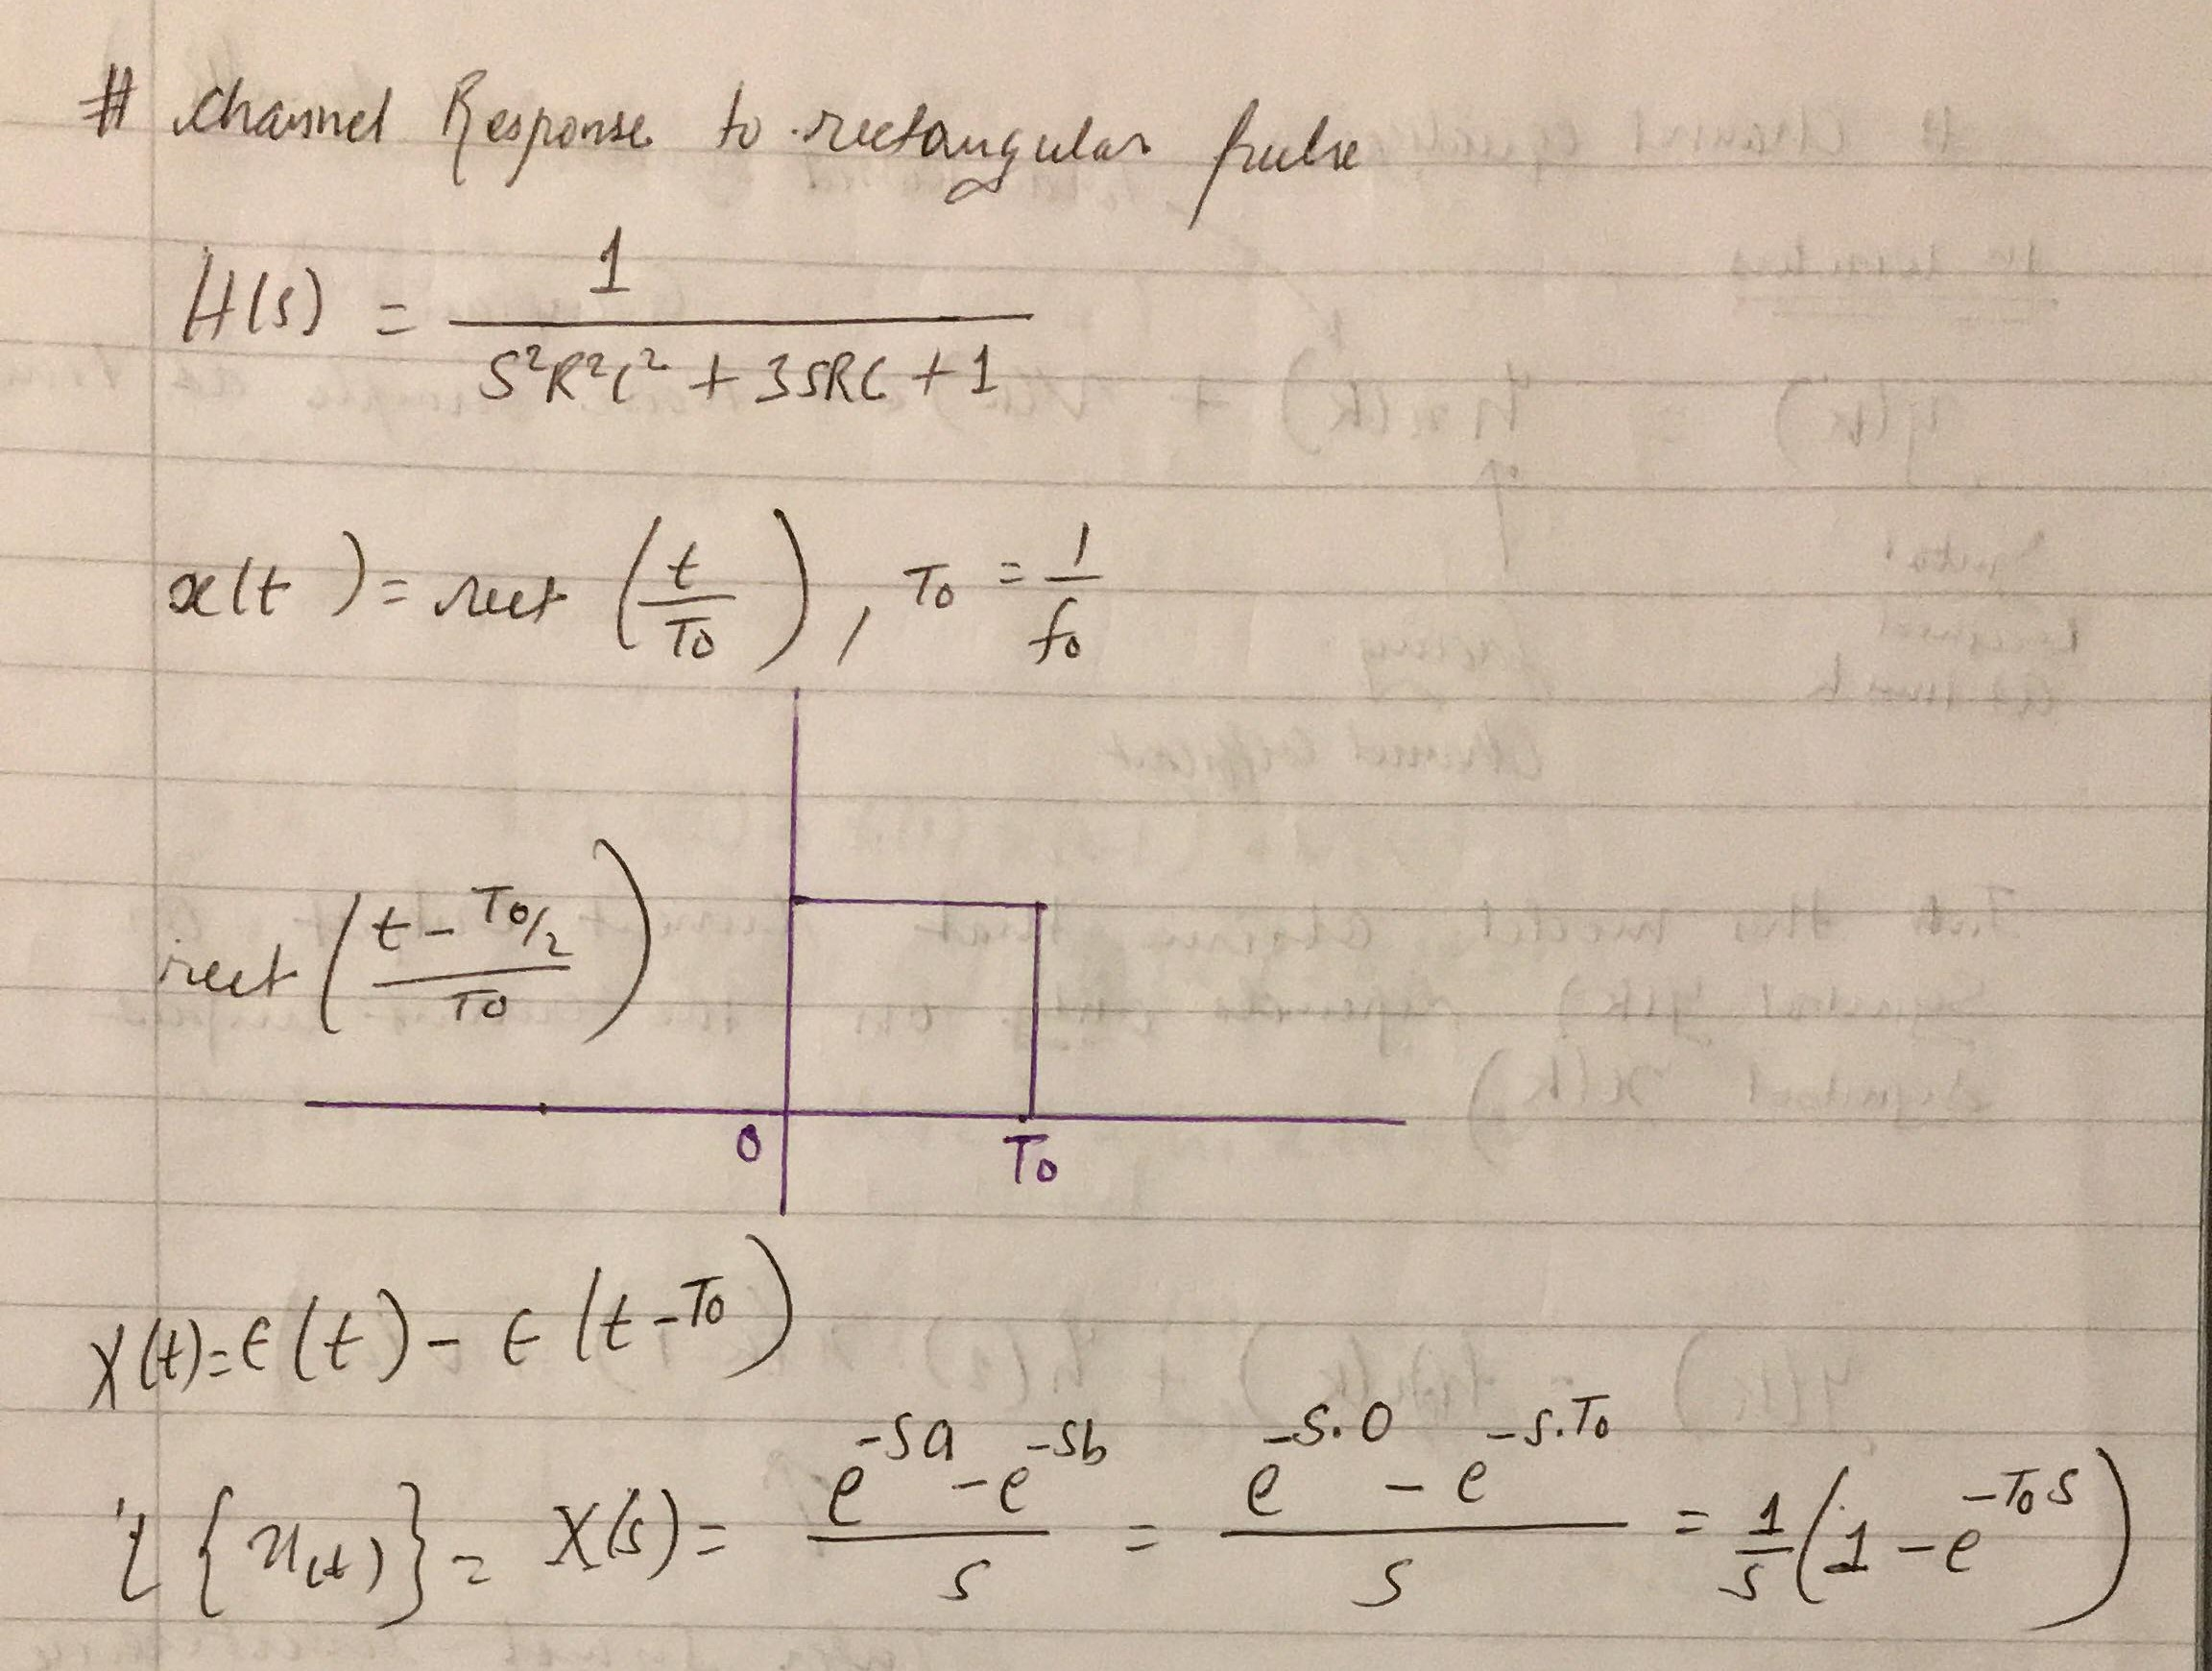 # Channel Response to rectangular pulse
H(s) = 1 / (S²R²C² + 3SRC + 1)
x(t) = rect (t/T₀), T₀ = 1/f₀
rect ((t - T₀/2)/T₀)
0 T₀
X(t) = ε(t) - ε(t - T₀)
L{x(t)} = X(s) = (e^(-sa) - e^(-sb))/s = (e^(-s.0) - e^(-s.T₀))/s = 1/s (1 - e^(-T₀s))